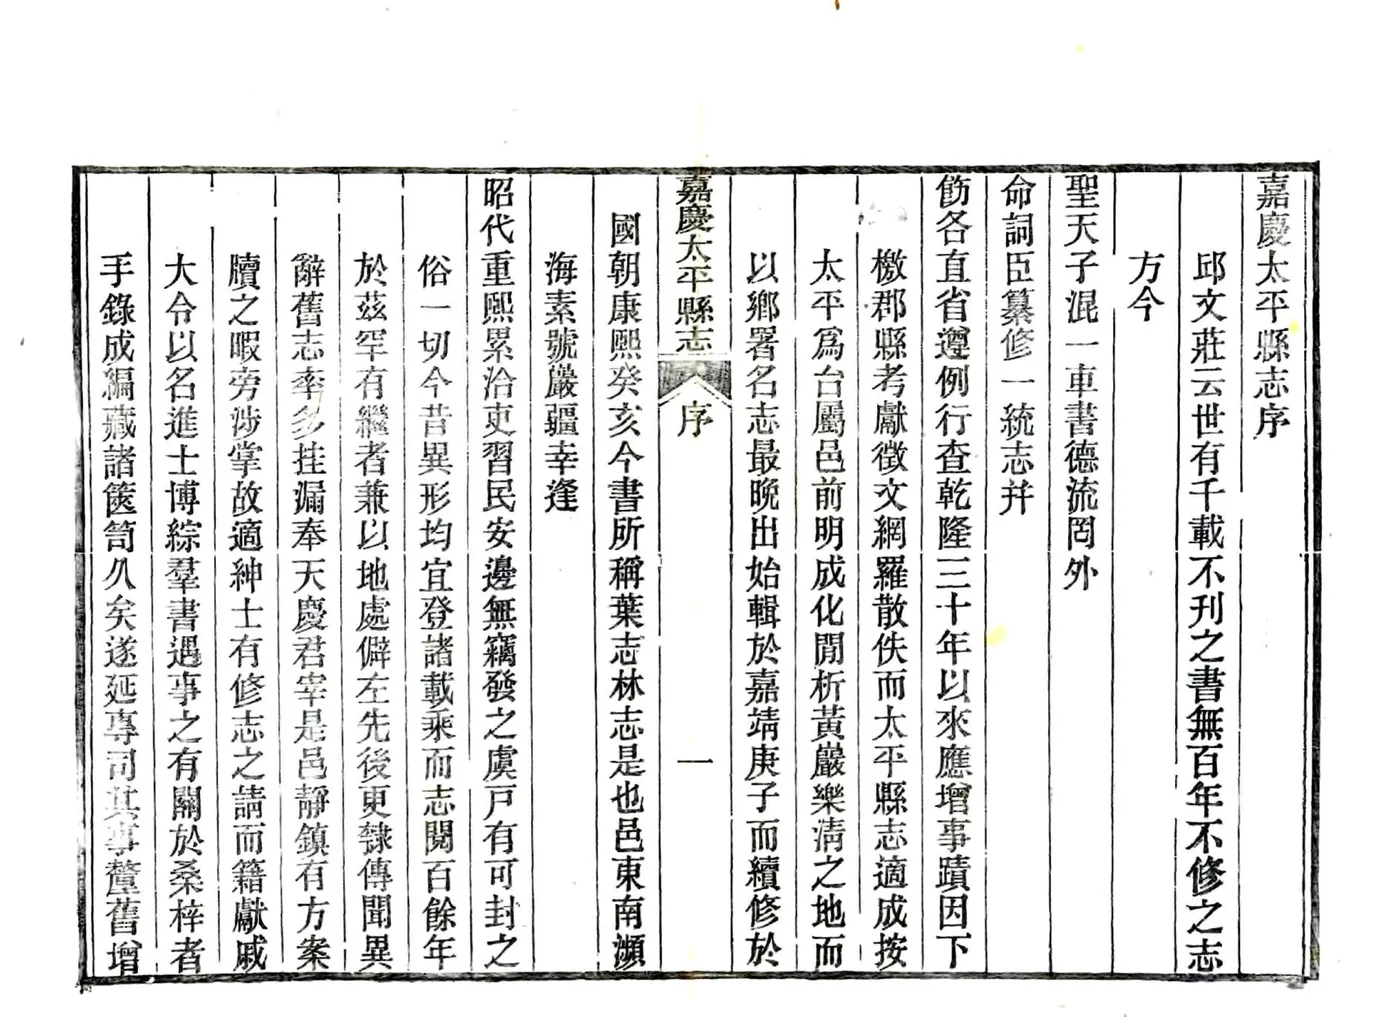 嘉慶太平縣志序
邱文莊云世有千載不刊之書無百年不修之志
方今
聖天子混一車書德流罔外
命詞臣纂修一統志并
飭各直省遵例行查乾隆三十年以來應增事蹟因下
檄郡縣考獻徵文網羅散佚而太平縣志適成按
太平爲台屬邑前明成化閒析黃巖樂清之地而
以鄉署名志最晚出始輯於嘉靖庚子而續修於
嘉慶太平縣志
序
一
國朝康熙癸亥今書所稱葉志林志是也邑東南瀕
海素號巖疆幸逢
昭代重熙累洽吏習民安邊無竊發之虞戸有可封之
俗一切今昔異形均宜登諸載乘而志閱百餘年
於茲罕有繼者兼以地處僻左先後更隸傳聞異
辭舊志率多挂漏奉天慶君宰是邑靜鎮有方案
牘之暇旁涉掌故適紳士有修志之請而籍獻戚
大令以名進士博綜羣書遇事之有關於桑梓者
手錄成編藏諸篋笥久矣遂延專司其事釐舊增